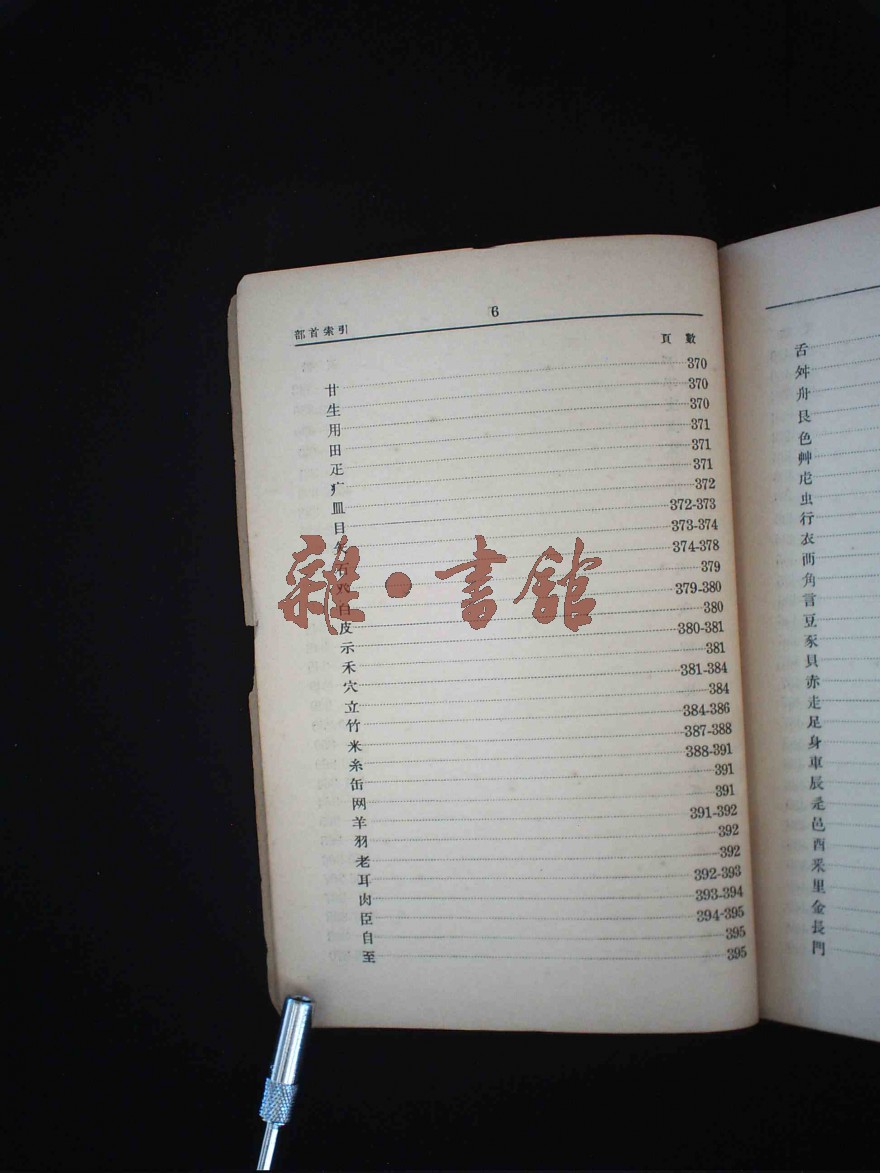 部首索引 6
頁 數
甘 370
生 370
用 370
田 371
疋 371
疒 371
皿 372
目 372-373
矢 373-374
石 374-378
379
白 379-380
皮 380
示 380-381
禾 381
穴 381-384
立 384
竹 384-386
米 387-388
糸 388-391
缶 391
网 391
羊 391-392
羽 392
老 392
耳 392-393
肉 393-394
臣 394-395
自 395
至 395
雜·書館
舌
舛
舟
艮
色
艸
虍
虫
行
衣
襾
角
言
豆
豕
貝
赤
走
足
身
車
辰
辵
邑
酉
釆
里
金
長
門